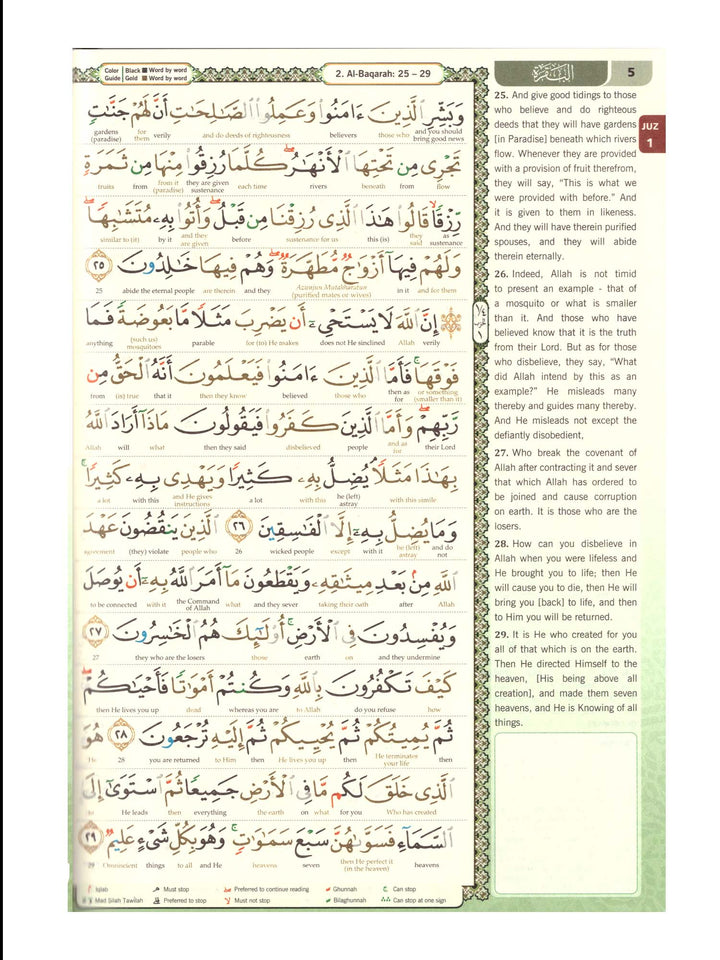 Color Guide: Black Word by word Gold Word by word
2. Al-Baqarah: 25 – 29
البقرة
5
JUZ
1
وَبَشِّرِ الَّذِينَ ءَامَنُوا وَعَمِلُوا الصَّالِحَاتِ أَنَّ لَهُمْ جَنَّاتٍ
and you should bring good news those who believers and do deeds of righteousness verily for them gardens (paradise)
تَجْرِى مِن تَحْتِهَا الْأَنْهَارُ كُلَّمَا رُزِقُوا مِنْهَا مِن ثَمَرَةٍ
flow from beneath rivers each time they are given sustenance from it (paradise) from fruits
رِّزْقًا قَالُوا هَٰذَا الَّذِى رُزِقْنَا مِن قَبْلُ وَأُتُوا بِهِۦ مُتَشَابِهًا
as sustenance they said this (is) sustenance for us before and they are given by it similar to (it)
وَلَهُمْ فِيهَا أَزْوَاجٌ مُّطَهَّرَةٌ وَهُمْ فِيهَا خَالِدُونَ ٢٥
and for them in it Azwajun Mutahharatun (purified mates or wives) and they are therein abide the eternal people 25
إِنَّ اللَّهَ لَا يَسْتَحْىِۦ أَن يَضْرِبَ مَثَلًا مَّا بَعُوضَةً فَمَا
verily Allah does not He sinclined for (to) He makes parable (such us) mosquitoes anything
فَوْقَهَا فَأَمَّا الَّذِينَ ءَامَنُوا فَيَعْلَمُونَ أَنَّهُ الْحَقُّ مِن
or something (smaller than it) then as for those who believed then they know that it (is) true from
رَّبِّهِمْ وَأَمَّا الَّذِينَ كَفَرُوا فَيَقُولُونَ مَاذَا أَرَادَ اللَّهُ
their Lord and as for people disbelieved then they said what will Allah
بِهَٰذَا مَثَلًا يُضِلُّ بِهِۦ كَثِيرًا وَيَهْدِى بِهِۦ كَثِيرًا
with this simile he (left) astray with this a lot and He gives instructions with this a lot
وَمَا يُضِلُّ بِهِۦ إِلَّا الْفَاسِقِينَ ٢٦ الَّذِينَ يَنقُضُونَ عَهْدَ
and do not he (left) astray with it except wicked people 26 people who (they) violate agreement
اللَّهِ مِنۢ بَعْدِ مِيثَاقِهِۦ وَيَقْطَعُونَ مَا أَمَرَ اللَّهُ بِهِۦ أَن يُوصَلَ
Allah after taking their oath and they sever what the Command of Allah with it to be connected
وَيُفْسِدُونَ فِى الْأَرْضِ أُولَٰئِكَ هُمُ الْخَاسِرُونَ ٢٧
and they undermine on earth those they who are the losers 27
كَيْفَ تَكْفُرُونَ بِاللَّهِ وَكُنتُمْ أَمْوَاتًا فَأَحْيَاكُمْ
how do you refuse to Allah whereas you are dead then He lives you up
ثُمَّ يُمِيتُكُمْ ثُمَّ يُحْيِيكُمْ ثُمَّ إِلَيْهِ تُرْجَعُونَ ٢٨ هُوَ
then He terminates your life then He lives you up then to Him you are returned 28 He
الَّذِى خَلَقَ لَكُم مَّا فِى الْأَرْضِ جَمِيعًا ثُمَّ اسْتَوَىٰ إِلَى
Who has created for you what on the earth everything then He leads to
السَّمَاءِ فَسَوَّاهُنَّ سَبْعَ سَمَاوَاتٍ وَهُوَ بِكُلِّ شَىْءٍ عَلِيمٌ ٢٩
heavens then He perfect it (in the heaven) seven heavens and He to all things Omniscient 29
Iqlab Must stop Preferred to continue reading Ghunnah Can stop
Mad Silah Tawilah Preferred to stop Must not stop Bilaghunnah Can stop at one sign
25. And give good tidings to those
who believe and do righteous
deeds that they will have gardens
[in Paradise] beneath which rivers
flow. Whenever they are provided
with a provision of fruit therefrom,
they will say, “This is what we
were provided with before.” And
it is given to them in likeness.
And they will have therein purified
spouses, and they will abide
therein eternally.
26. Indeed, Allah is not timid
to present an example - that of
a mosquito or what is smaller
than it. And those who have
believed know that it is the truth
from their Lord. But as for those
who disbelieve, they say, “What
did Allah intend by this as an
example?” He misleads many
thereby and guides many thereby.
And He misleads not except the
defiantly disobedient,
27. Who break the covenant of
Allah after contracting it and sever
that which Allah has ordered to
be joined and cause corruption
on earth. It is those who are the
losers.
28. How can you disbelieve in
Allah when you were lifeless and
He brought you to life; then He
will cause you to die, then He will
bring you [back] to life, and then
to Him you will be returned.
29. It is He who created for you
all of that which is on the earth.
Then He directed Himself to the
heaven, [His being above all
creation], and made them seven
heavens, and He is Knowing of all
things.